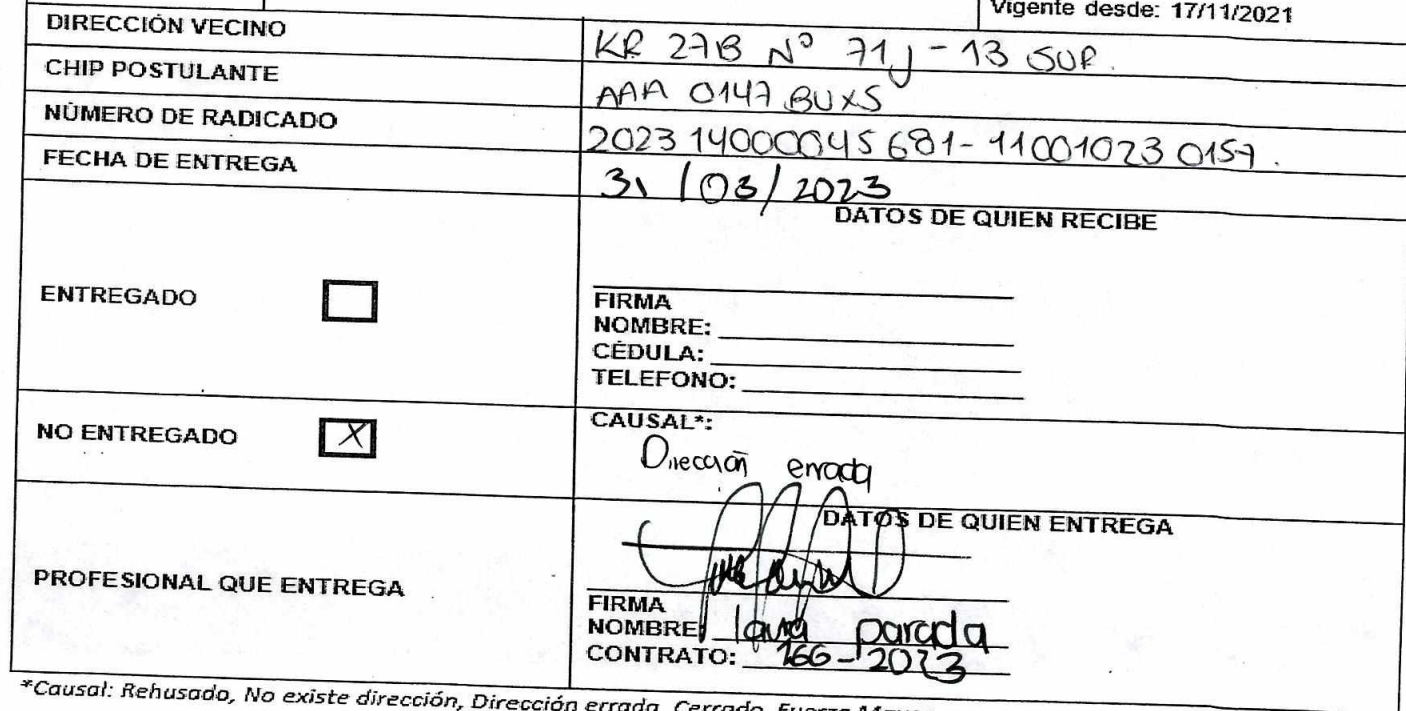 Vigente desde: 17/11/2021
DIRECCIÓN VECINO
KR 27B Nº 71J - 13 SUR.
CHIP POSTULANTE
AAA 0147 BUXS
NÚMERO DE RADICADO
2023 14000045 681 - 11001023 0157.
FECHA DE ENTREGA
31 /03/ 2023
DATOS DE QUIEN RECIBE
ENTREGADO
FIRMA
NOMBRE:
CÉDULA:
TELEFONO:
NO ENTREGADO X
CAUSAL*:
Dirección errada
DATOS DE QUIEN ENTREGA
PROFESIONAL QUE ENTREGA
FIRMA
NOMBRE: laura parada
CONTRATO: 166-2023
*Causal: Rehusado, No existe dirección, Dirección errada, Cerrado, Fuerza